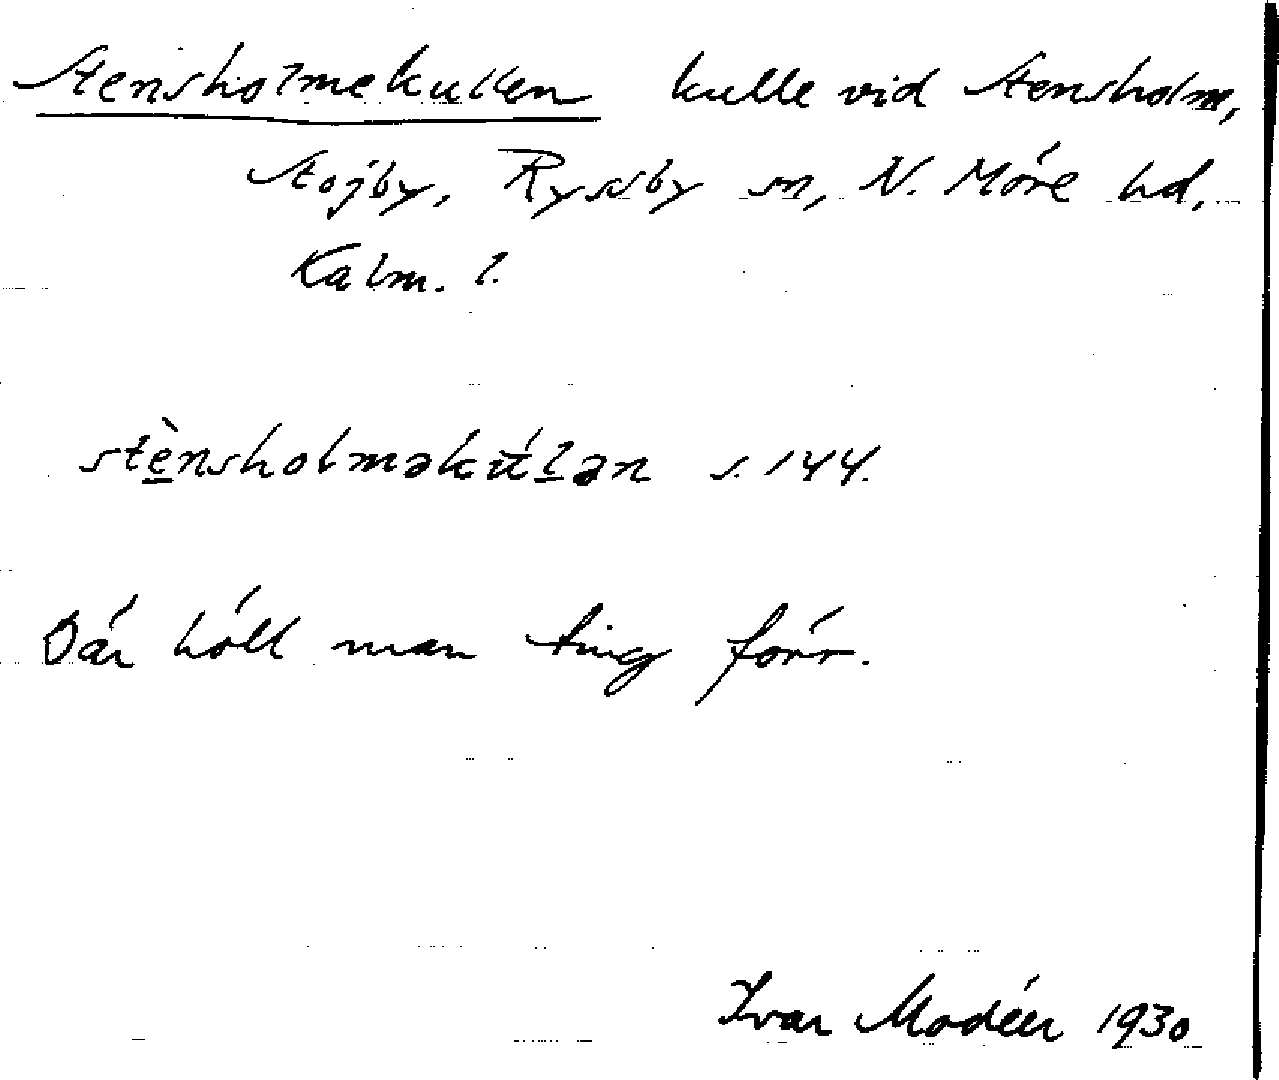 Stensholmekullen kulle vid Stensholm,
Stojby, Ryssby sn, N. Möre hd,
Kalm. l.
stènsholməkúlən s. 144.
Där höll man ting förr.
Ivar Modéer 1930